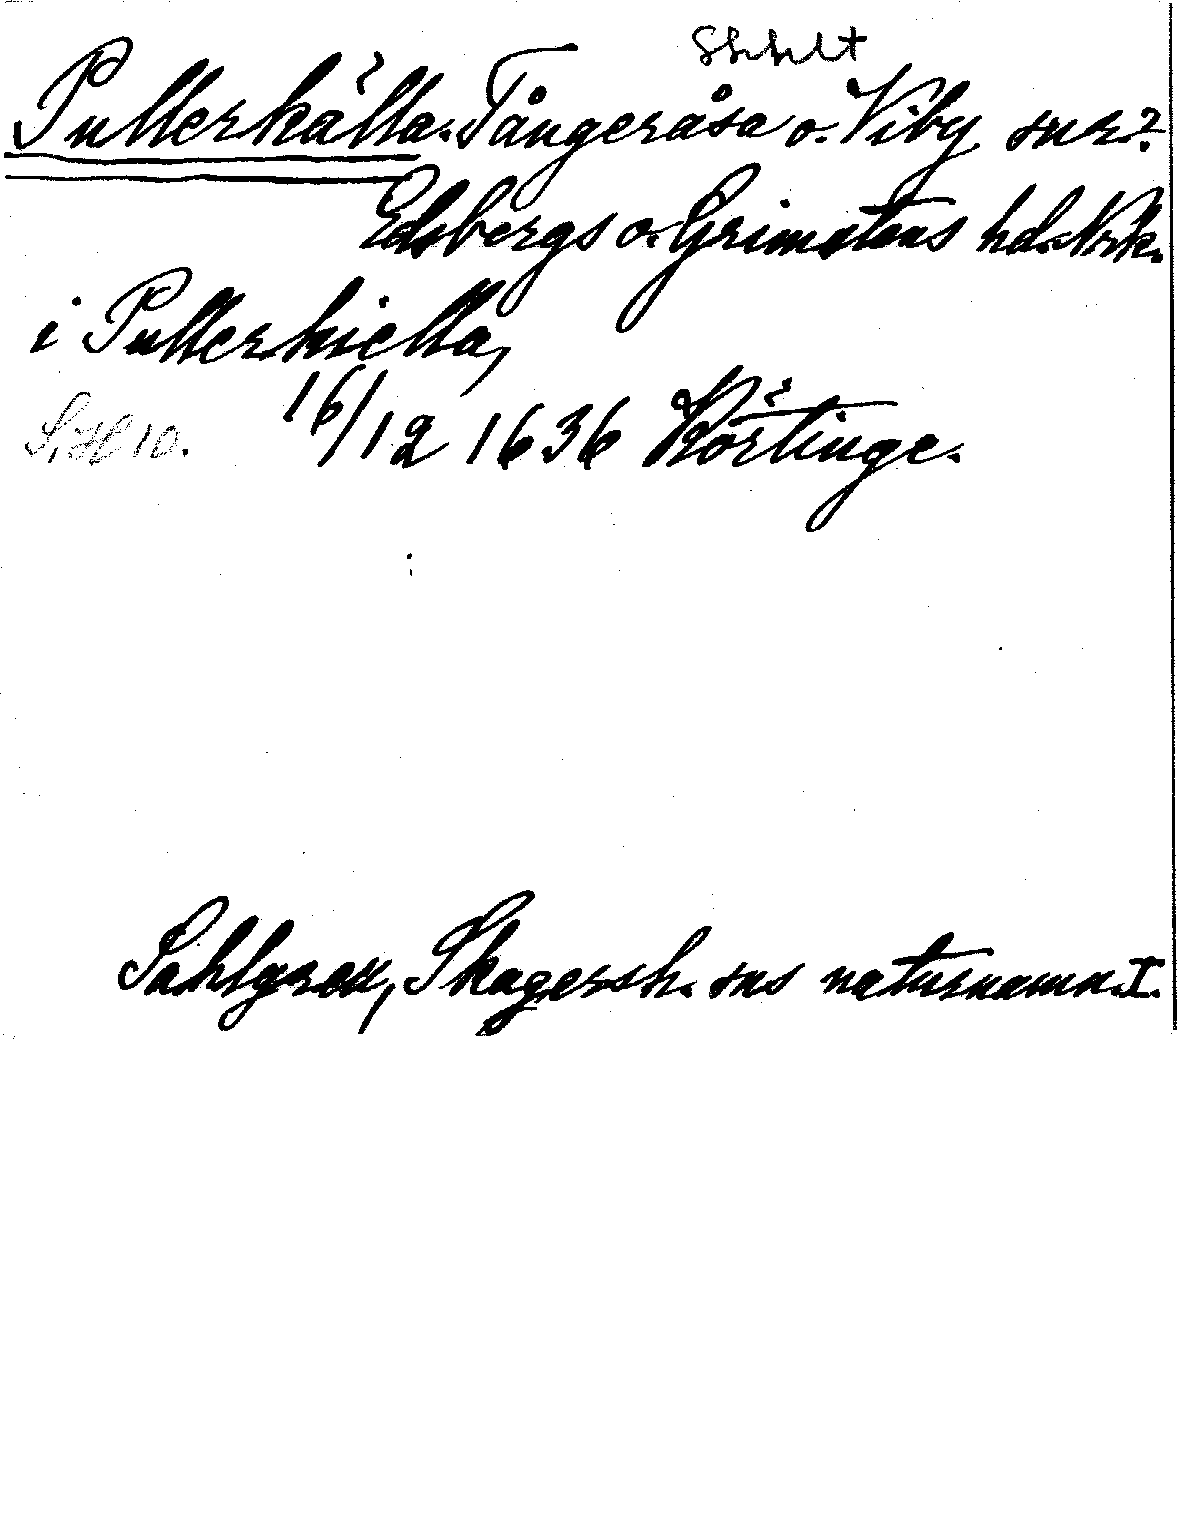 Skhlt
Pullerkälla. Tångeråsa o. Viby snr?
Edsbergs o. Grimstens hd. Nrk.
i Pullerkiella,
S. H 10. 16/12 1636 Körtinge.
Sahlgren, Skagersh. sns naturnamn. I.